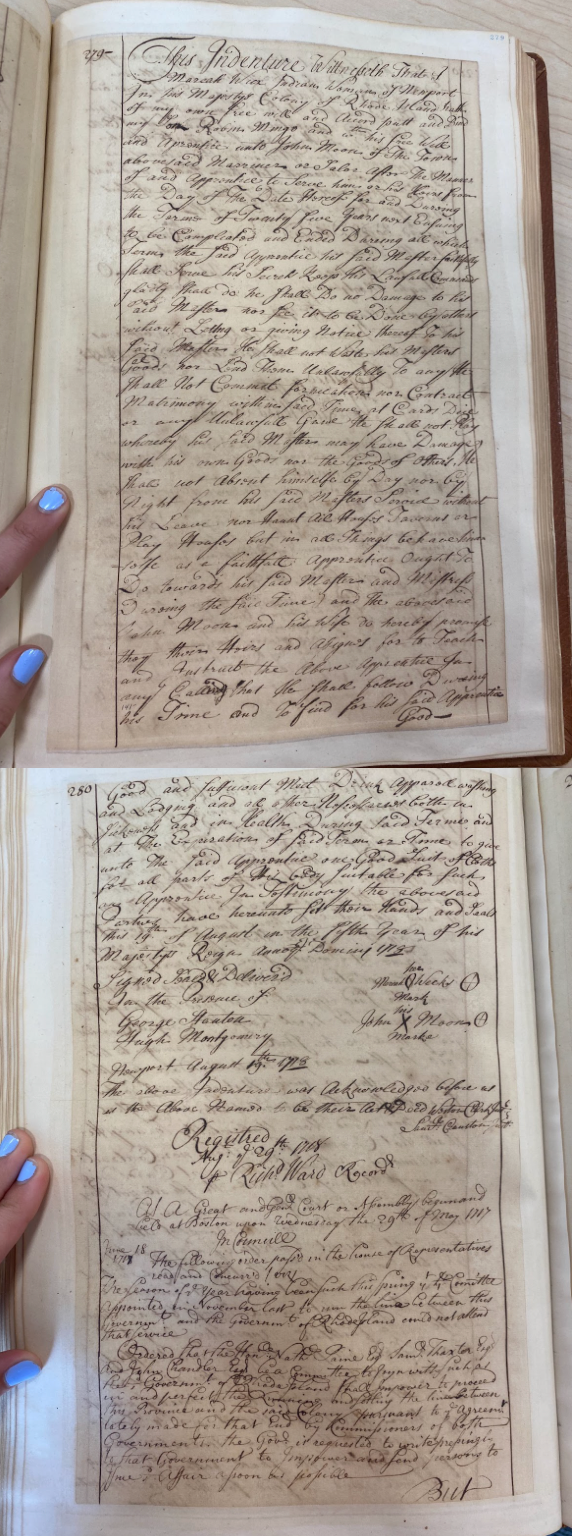 279
This Indenture Witnesseth That I
Mareah Wicx Indian Woman of Newport
In his Majestys Colony of Rhode Island hath
of my own free will and Acord putt and Bind
my Son Robin Mingo and wth his free Will
and Aprentice unto John Moon of The Town
abovesaid Marriner or Salor After The Manner
of and Apprentice to Serve him or his Heirs from
the Day of The Date Hereof for and During
the Terme of Twenty five Years next Ensuing
to be Compleated and Ended During all which
Terme the said Apprentice his said Master faithfully
shall Serve his Secrets Keep His Lawfull Comands
gladly Shall do he Shall Do no Damage to his
said Master nor see it to be Done by others
without Letting or giving Notice thereof To his
said Master He shall not Waste his Masters
Goods nor Lend Them Unlawfully to any He
shall Not Commit fornication nor Contract
Matrimony within said Time at Cards Dice
or any Unlawfull Game He shall not Play
whereby his said Master may have Damage
with his own Goods nor the Goods of others He
shall not Absent himselfe by Day nor by
Night from his said Masters Service without
his Leave nor Haunt Ale Houses Taverns or
Play Houses but in all Things behave him
selfe as a faithfull Apprentice Ought To
Do towards his said Master and Mistress
During the said Time and The abovesaid
John Moon and his Wife do hereby promise
they their Heirs and Asigns for to Teach
and Instruct the Above Apprentice In
any Calling that He shall follow During
his Time and To find for his said Apprentice
Good
280
Good and sufficient Meat Drink Apparell washing
and Lodging and all other Nesessareys both in
Sickness and in Health During said Terme and
at The Expirations of said Terme or Time to give
unto The said Apprentice one Good Suit of Cloths
for all parts of His body Suitable for such
an Apprentice In Testimony the abovesaid
Parties have hereunto set their Hands and Seals
this 19th of August in the fifth Year of his
Majestys Reign Domini 1718
Signed Seal'd & Deliverd
In the Presence of
George Stanton
Hugh Montgomery
her
Weeks
Mark
his
John X Moon
Marke
Newport August 19th 1718
the above Indenture was Acknowledged before us
as the Above Named to be their Act & Deed Weston Clark
Saml Cranston
Registred
Augst ye 29th 1718
Pr Richd Ward Recordr
At A Great and Genll Court or Assembly begun and
held at Boston upon Wednesday the 29th of May 1717
In Councill
June 18
1717
The following order pass'd in the house of Representatives
read and Concurr'd (viz)
The Season of ye Year having been such this spring yt ye Comittee
Appointed in November last to run the line between this
Governmt and the Governmt of Rhode Island could not attend
that service
Ordered that the Honble Nathll Paine Esq Samll Thaxter Esq
and John Chandler Esq be a Committee to Joyn with such as
the Government of Rhode Island shall Impower to proceed
in and perfect the Running and settling the line between
this Province and the said Colony pursuant to ye Agreemt
lately made for that End by Commissioners of both
Governments the Govr is requested to write pressing
to that Government to Impower and send persons to
ye Affair as soon as possible
But